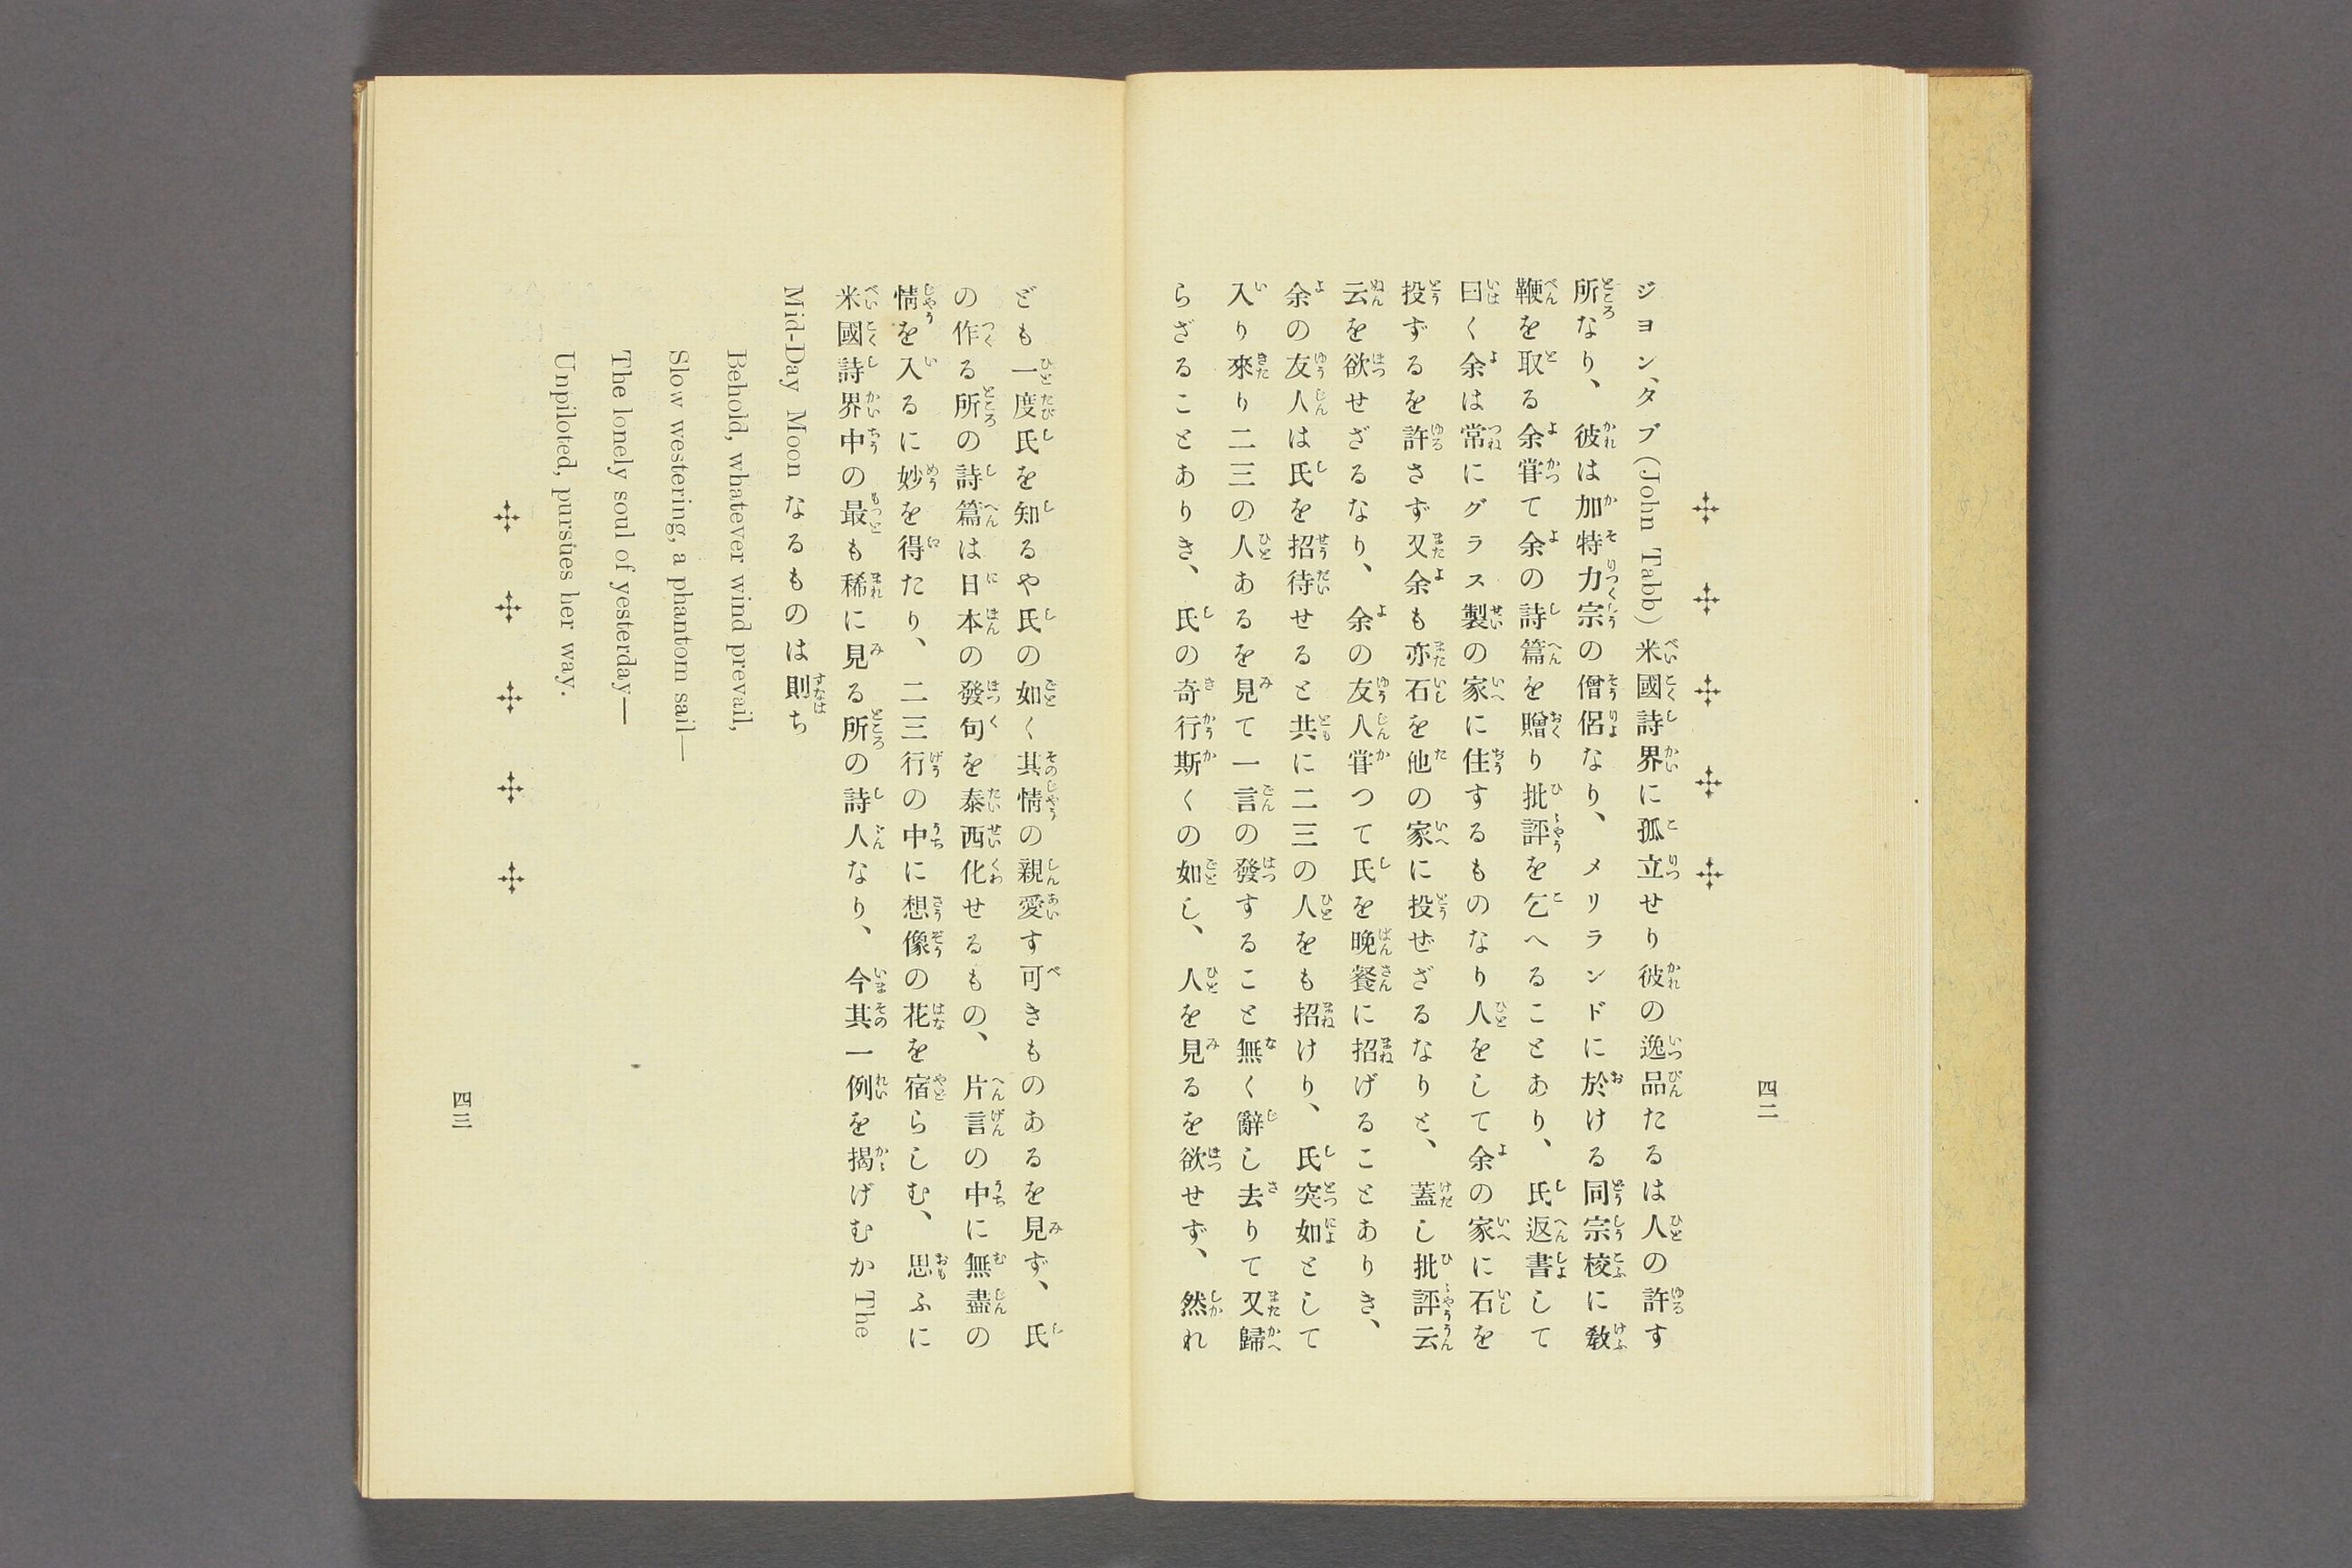 四二
ジヨン、タブ(John Tabb)米國詩界に孤立せり彼の逸品たるは人の許す
所なり、彼は加特力宗の僧侶なり、メリランドに於ける同宗校に敎
鞭を取る余甞て余の詩篇を贈り批評を乞へることあり、氏返書して
曰く余は常にグラス製の家に住するものなり人をして余の家に石を
投ずるを許さず又余も亦石を他の家に投ぜざるなりと、蓋し批評云
云を欲せざるなり、余の友人甞つて氏を晩餐に招げることありき、
余の友人は氏を招待せると共に二三の人をも招けり、氏突如として
入り來り二三の人あるを見て一言の發すること無く辭し去りて又歸
らざることありき、氏の奇行斯くの如し、人を見るを欲せず、然れ
ども一度氏を知るや氏の如く其情の親愛す可きものあるを見ず、氏
の作る所の詩篇は日本の發句を泰西化せるもの、片言の中に無盡の
情を入るに妙を得たり、二三行の中に想像の花を宿らしむ、思ふに
米國詩界中の最も稀に見る所の詩人なり、今其一例を揭げむか The
Mid-Day Moon なるものは則ち
Behold, whatever wind prevail,
Slow westering, a phantom sail—
The lonely soul of yesterday—
Unpiloted, pursues her way.
四三